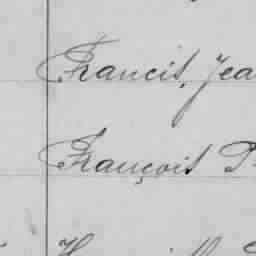 Francis, Jea
François P